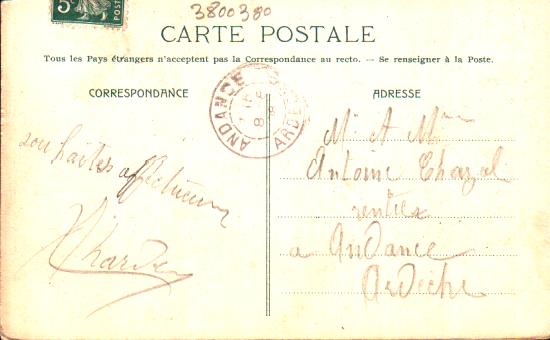 5c
3800380
CARTE POSTALE
Tous les Pays étrangers n'acceptent pas la Correspondance au recto. — Se renseigner à la Poste.
CORRESPONDANCE
ADRESSE
ANDANCE
ARDÈCHE
souhaites affectueux
Mr A Mme
Antoine Chazal
rentier
a Andance
Ardèche